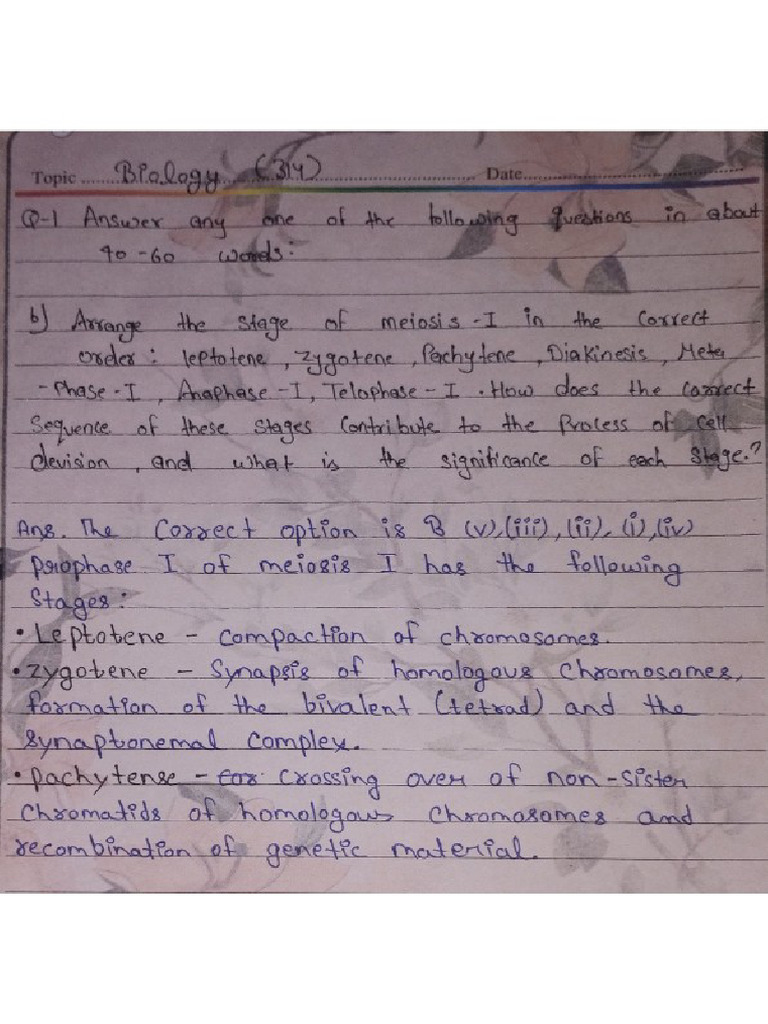 Topic ....... Biology (314) ............ Date ............
Q-1 Answer any one of the following questions in about
40-60 words:
b) Arrange the stage of meiosis-I in the correct
order: leptotene, Zygotene, Pachytene, Diakinesis, Meta
-Phase-I, Anaphase-I, Telophase-I. How does the correct
Sequence of these stages contribute to the process of cell
devision, and what is the significance of each stage.?
Ans. The correct option is B (v),(iii),(ii),(i),(iv)
prophase I of meiosis I has the following
stages:
• Leptotene - compaction of chromosomes.
• Zygotene - Synapsis of homologous chromosomes,
formation of the bivalent (tetrad) and the
synaptonemal complex.
• pachytense - for crossing over of non-sister
chromatids of homologous chromosomes and
recombination of genetic material.